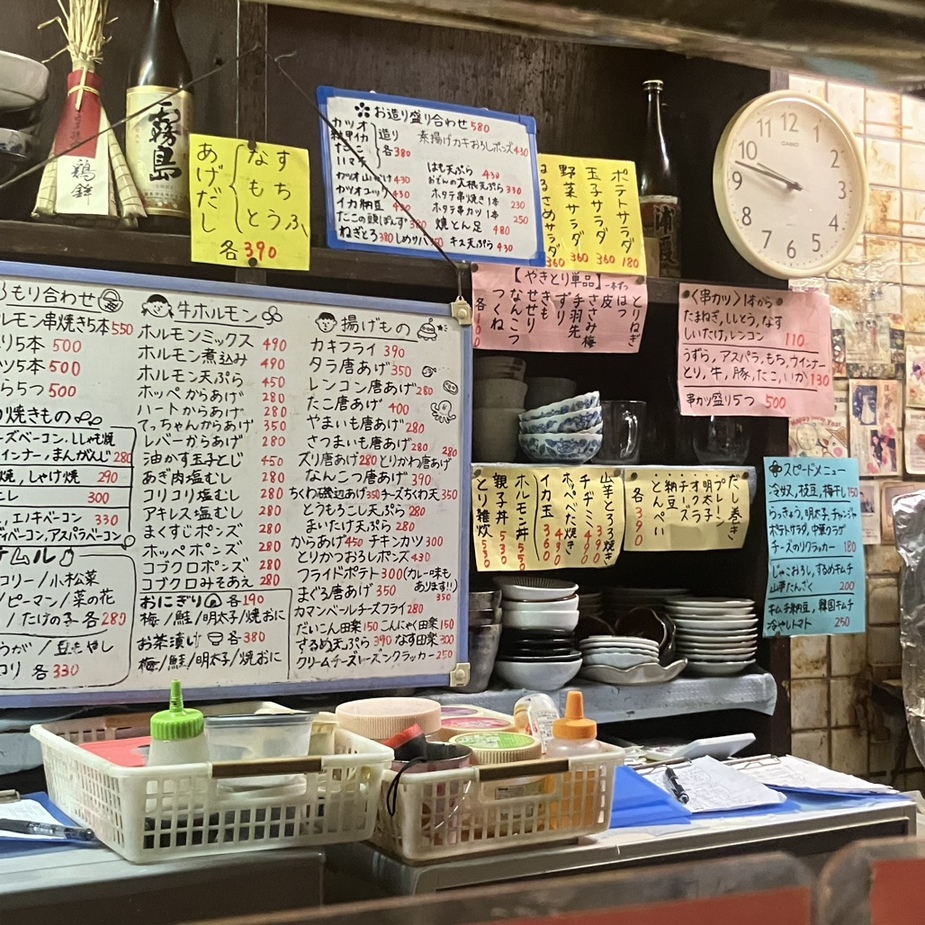 霧島
鶏鉾
あげだし
なす
もち
とうふ
各390
お造り盛り合わせ580
カツオ
たこ
造り
各380
素揚げカキおろしポンズ430
カツオ山かけ430
カツオユッケ430
イカ納豆
たこの頭ぽんず
ねぎとろ380
はも天ぷら 430
おでんの大根天ぷら330
ホタテ串焼き1本 230
ホタテ串カツ1本 250
焼とん足 480
キス天ぷら 430
ポテトサラダ 180
玉子サラダ 360
野菜サラダ 360
はるさめサラダ 360
CASIO
12 1 2 3 4 5 6 7 8 9 10 11
【やきとり単品】
とりねぎ
はつ
皮
ささみ梅
手羽先
ずり
きも
せせり
なんこつ
つくね
各
<串カツ>1本から
たまねぎ,ししとう,なす
しいたけ,レンコン 110
うずら,アスパラ,もち,ウインナー
とり,牛,豚,たこ,いか 130
串カツ盛り5つ 500
もり合わせ
ルモン串焼き5本550
り5本 500
ツ5本 500
ら5つ 500
焼きもの
ーズベーコン,ししゃも焼
ウインナー,まんがんじ 280
焼,しゃけ焼 290
300
エノキベーコン 330
ベーコン,アスパラベーコン
ナムル
コリー/小松菜
/ピーマン/菜の花
/たけの子 各280
各330
牛ホルモン
ホルモンミックス 490
ホルモン煮込み 490
ホルモン天ぷら 450
ホッペからあげ 280
ハートからあげ 280
てっちゃんからあげ 350
レバーからあげ 280
油かす玉子とじ 450
あぎ肉塩むし 280
コリコリ塩むし 280
アキレス塩むし 280
まくすじポンズ 280
ホッペポンズ 280
コブクロポンズ 280
コブクロみそあえ 280
おにぎり 各190
梅/鮭/明太子/焼おに
お茶漬け 各380
梅/鮭/明太子/焼おに
揚げもの
カキフライ 390
タラ唐あげ 350
レンコン唐あげ 280
たこ唐あげ 400
やまいも唐あげ 280
さつまいも唐あげ 280
ズリ唐あげ280 とりかわ唐あげ 280
なんこつ唐あげ 390
ちくわ磯辺あげ350 チーズちくわ天 350
とうもろこし天ぷら 280
まいたけ天ぷら 280
からあげ450 チキンカツ 300
とりかつおろしポンズ 430
フライドポテト300 (カレー味もあります!!)
まぐろ唐あげ 350 350
カマンベールチーズフライ 280
だいこん田楽150 こんにゃく田楽 150
するめ天ぷら390 なす田楽 300
クリームチーズレーズンクラッカー 250
山芋とろろ焼き 390
チヂミ 490
ホッペたた焼き 490
イカ玉 360
ホルモン丼 550
親子丼
とり雑炊 530
だし巻き
プレーン
明太子
オクラ
チーズ
納豆
とんぺい
各390
スピードメニュー
冷奴,枝豆,梅干し 150
らっきょう,明太子,チャンジャ
ポテトサラダ,中華クラゲ
チーズのりクラッカー 180
じゃこおろし,するめキムチ
山芋たんざく 200
キムチ納豆,韓国キムチ
冷やしトマト 250